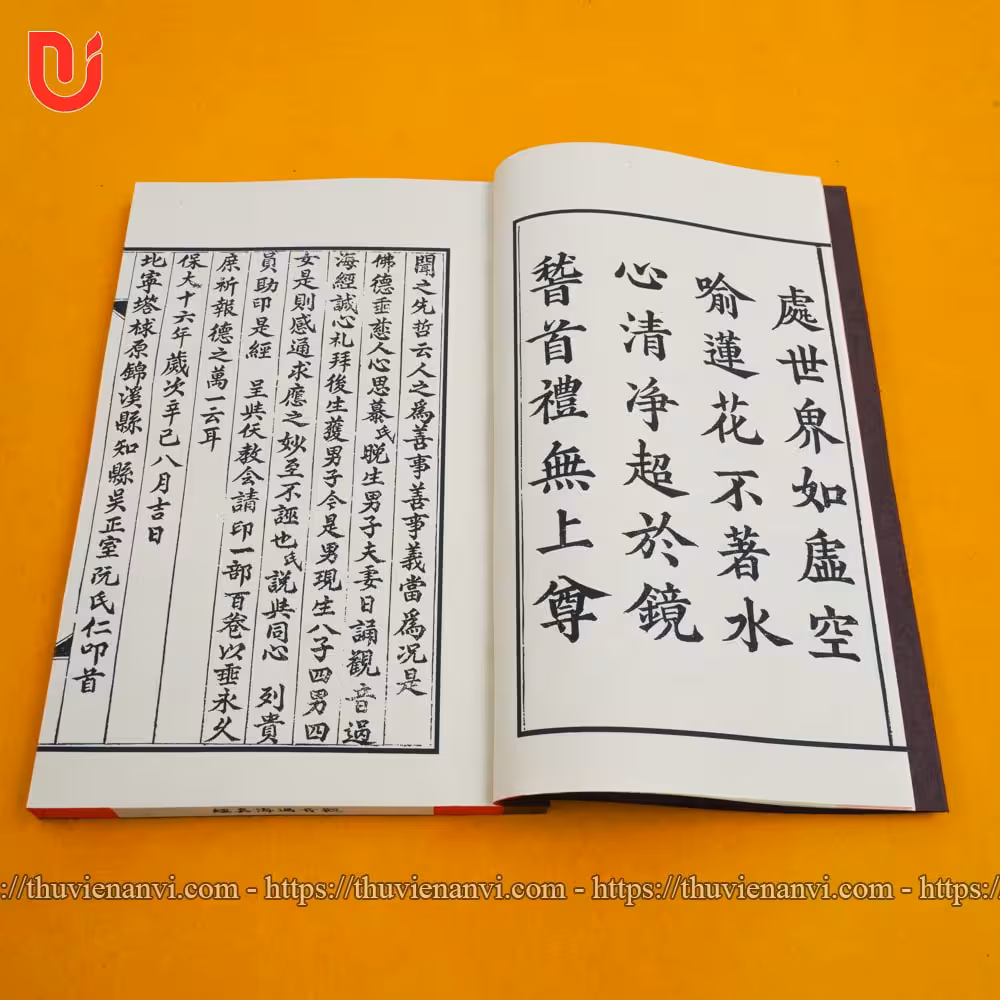 處世界如虛空
喻蓮花不著水
心清净超於鏡
稽首禮無上尊
聞之先哲云人之為善事善事義當為况是
佛德垂慈人心思慕氏晚生男子夫妻日誦觀音過
海經誠心礼拜後生獲男子今是男現生八子四男四
女是則感通求應之妙至不誣也氏説與同心 列貴
員助印是經 呈與仸教会請印一部百卷以垂永久
庶祈報德之萬一云耳
保大十六年歲次辛巳八月吉日
北寧塔梂原錦溪縣知縣吴正室阮氏仁叩首
觀音過海真經
://thuvienanvi.com - https://thuvienanvi.com - https://thuvienanvi.com - https